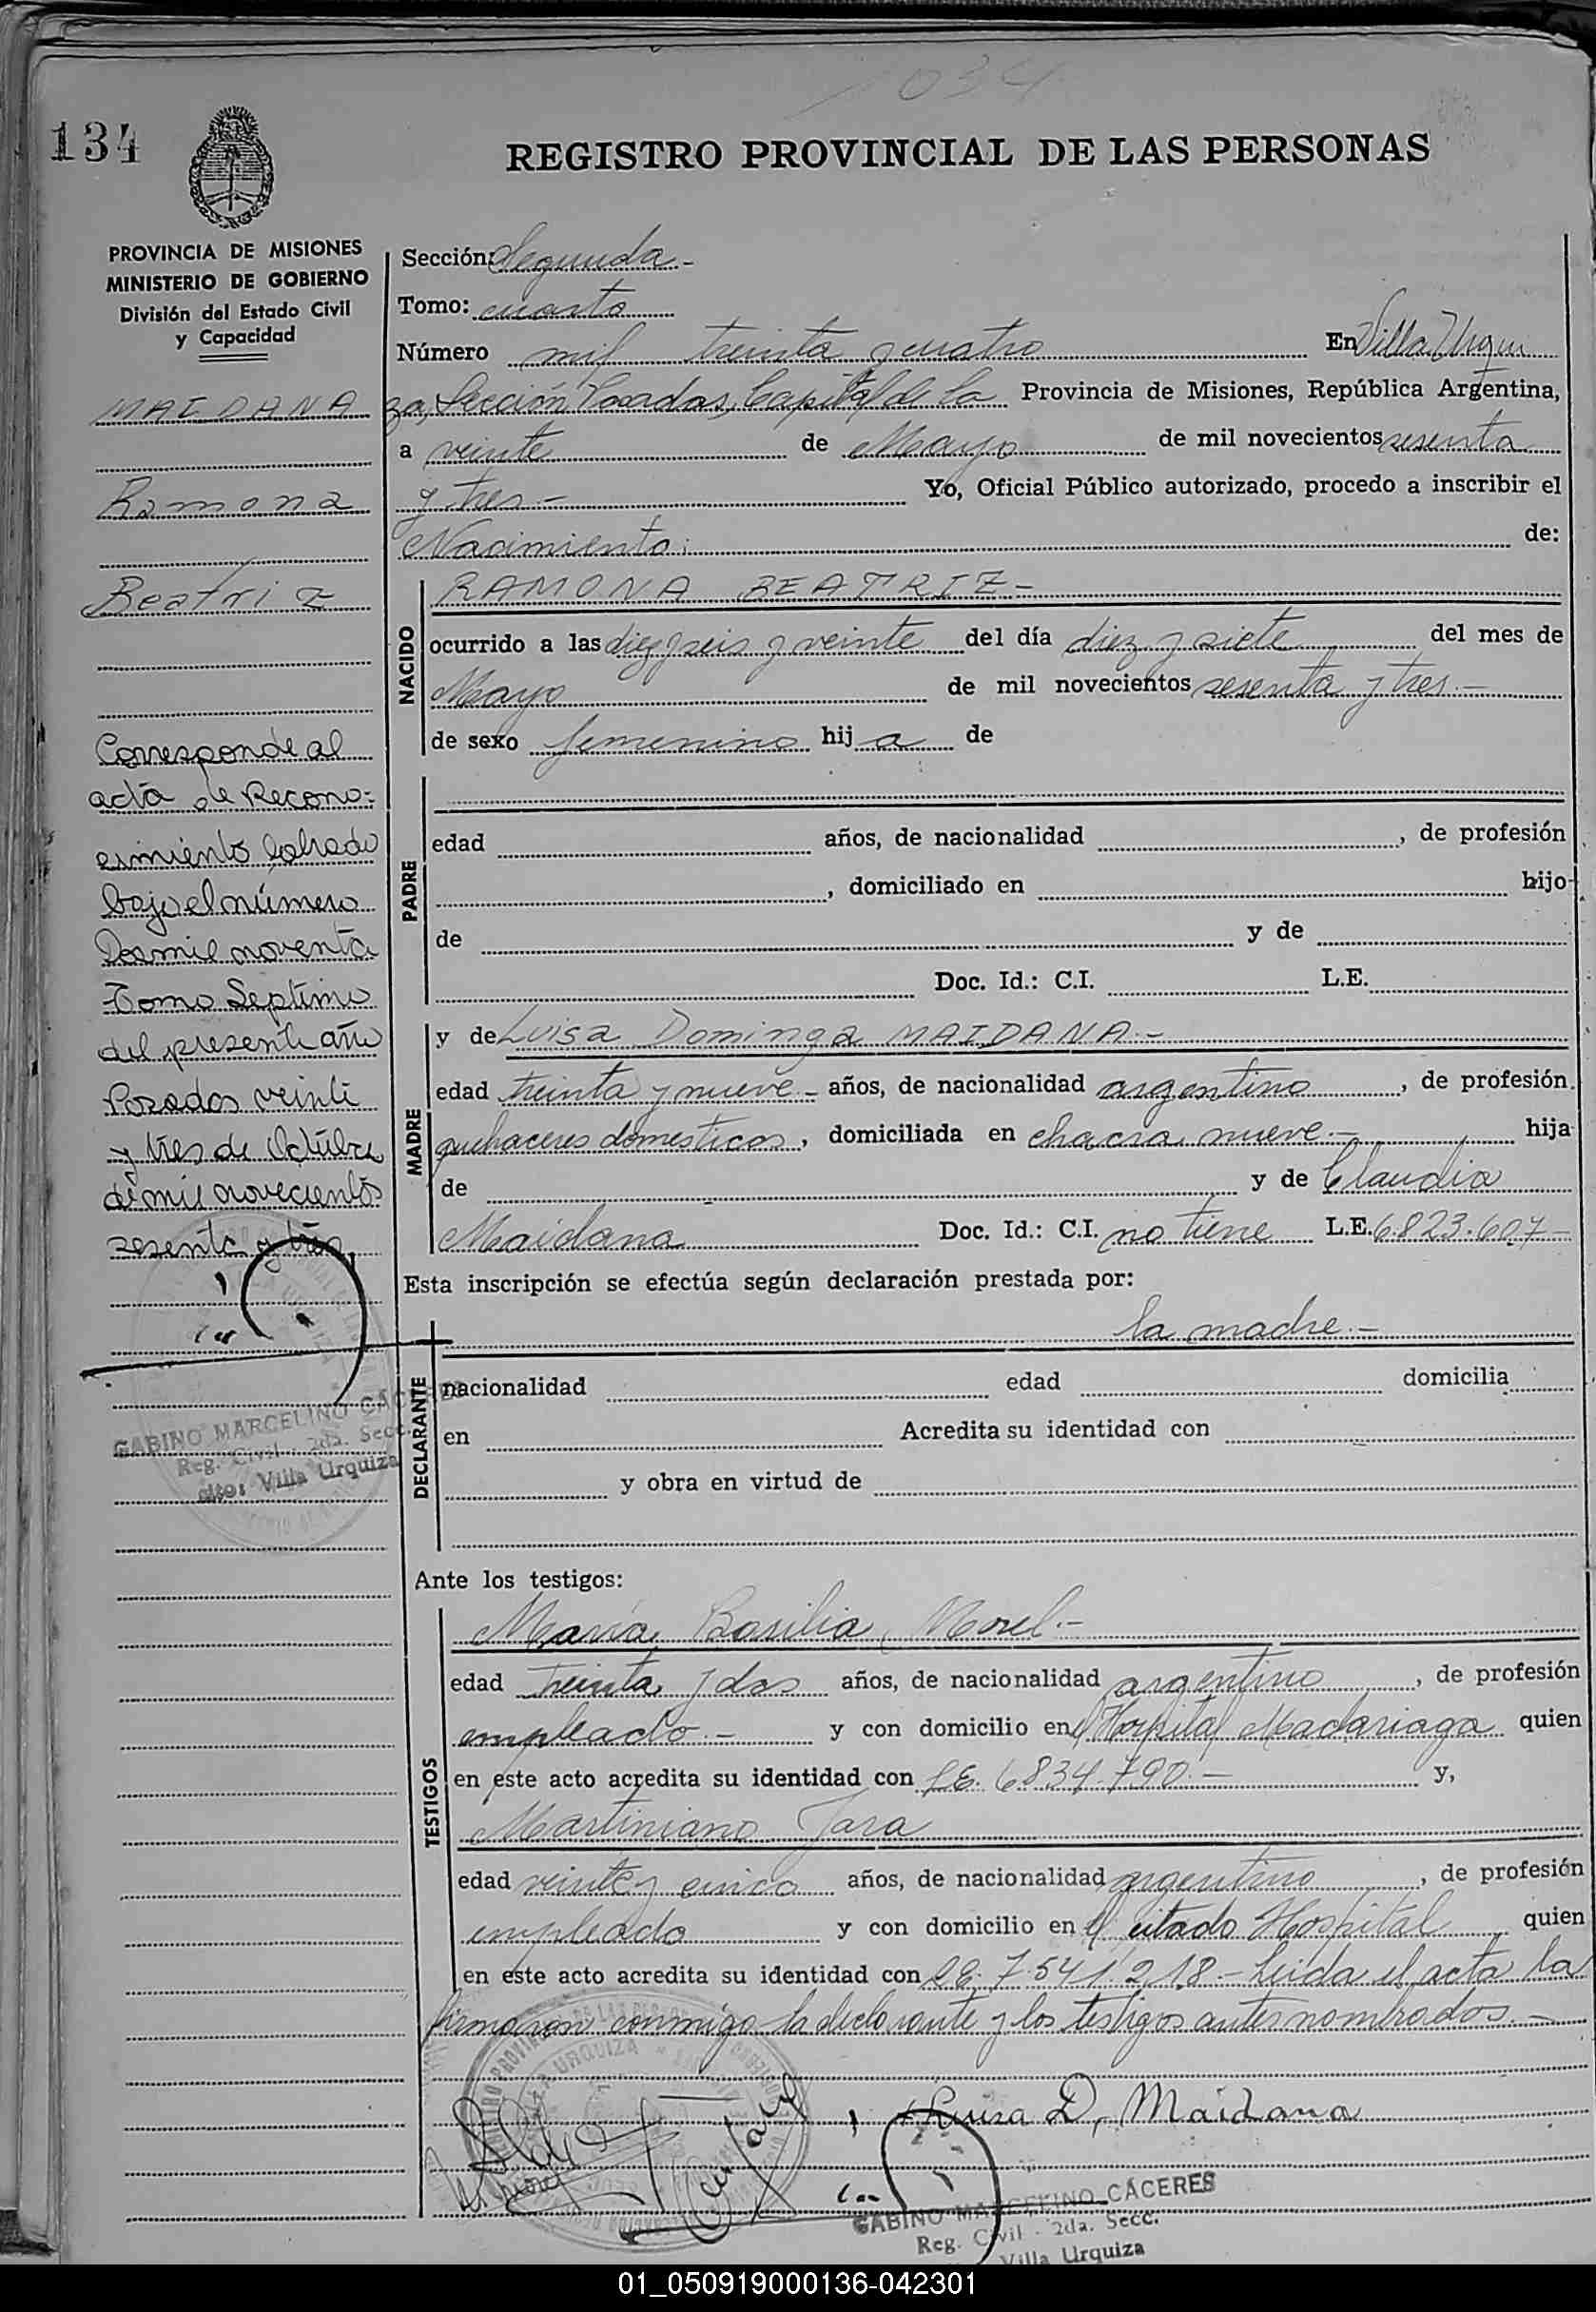 1034
134
REGISTRO PROVINCIAL DE LAS PERSONAS
PROVINCIA DE MISIONES
MINISTERIO DE GOBIERNO
División del Estado Civil
y Capacidad
MAIDANA
Ramona
Beatriz
Corresponde al
acta de Recono-
cimiento labrado
bajo el número
Dosmil noventa
Tomo Septimo
del presente año
Posadas veinti
y tres de Octubre
de mil novecientos
sesenta y tres
GABINO MARCELINO CACERES
Reg. Civil - 2da. Secc.
Villa Urquiza
Sección: Segunda -
Tomo: cuarto
Número mil treinta y cuatro En Villa Urqui
za, Sección Posadas, Capital de la Provincia de Misiones, República Argentina,
a veinte de Mayo de mil novecientos sesenta
y tres.- Yo, Oficial Público autorizado, procedo a inscribir el
Nacimiento: de:
NACIDO
RAMONA BEATRIZ -
ocurrido a las diez y seis y veinte del día diez y siete del mes de
Mayo de mil novecientos sesenta y tres.-
de sexo femenino hij a de
PADRE
edad años, de nacionalidad , de profesión
, domiciliado en hijo
de y de
Doc. Id.: C.I. L.E.
MADRE
y de Luisa Dominga MAIDANA.-
edad treinta y nueve - años, de nacionalidad argentino , de profesión
quehaceres domesticos, domiciliada en chacra nueve.- hija
de y de Claudia
Maidana Doc. Id.: C.I. no tiene L.E. 6.823.607
Esta inscripción se efectúa según declaración prestada por:
la madre.-
DECLARANTE
nacionalidad edad domicilia
en Acredita su identidad con
y obra en virtud de
Ante los testigos:
TESTIGOS
María Basilia Morel.-
edad treinta y dos años, de nacionalidad argentino , de profesión
empleado.- y con domicilio en el Hospital Madariaga quien
en este acto acredita su identidad con L.E. 6834.790.- y,
Martiniano Jara
edad veinte y cinco años, de nacionalidad argentino , de profesión
empleado y con domicilio en el citado Hospital quien
en este acto acredita su identidad con L.E. 7.541.218.- Leida el acta la
firmaron conmigo la declarante y los testigos antes nombrados.-
Luisa D, Maidana
GABINO MARCELINO CACERES
Reg. Civil - 2da. Secc.
Villa Urquiza
01_050919000136-042301